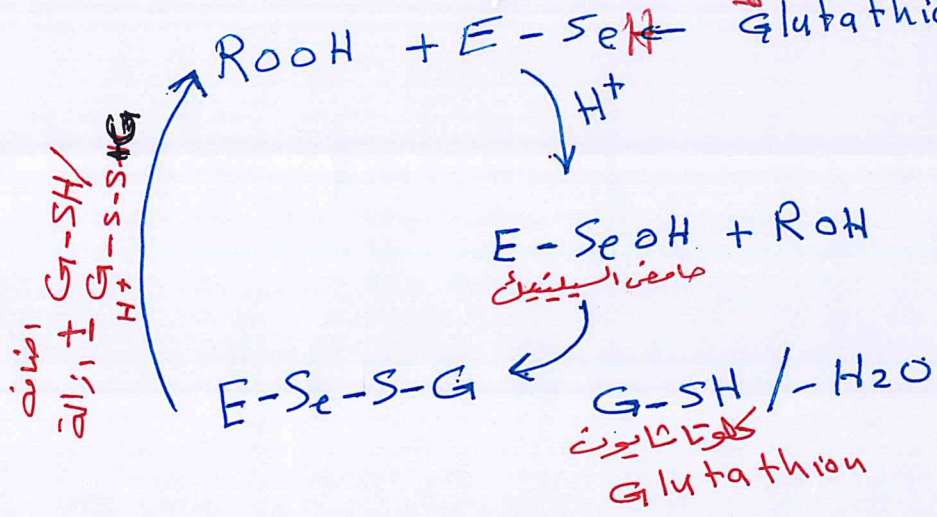 ROOH + E - SeH ← Glutathio
H+
E - SeOH + ROH
حامض السيلينيك
E-Se-S-G
G-SH / - H2O
كلوتاثايون
Glutathion
اضافة
ازالة
± G-SH/
G-S-S-G
H+